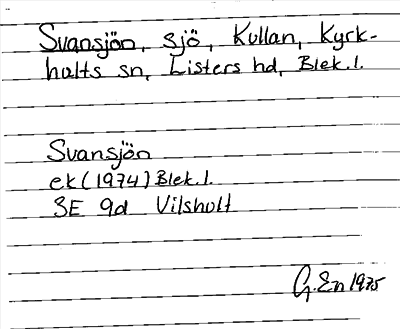 Svansjön, sjö, Kullan, Kyrk-
hults sn, Listers hd, Blek.l.
Svansjön
ek (1974) Blek.l.
3E 9d Vilshult
G.En 1975